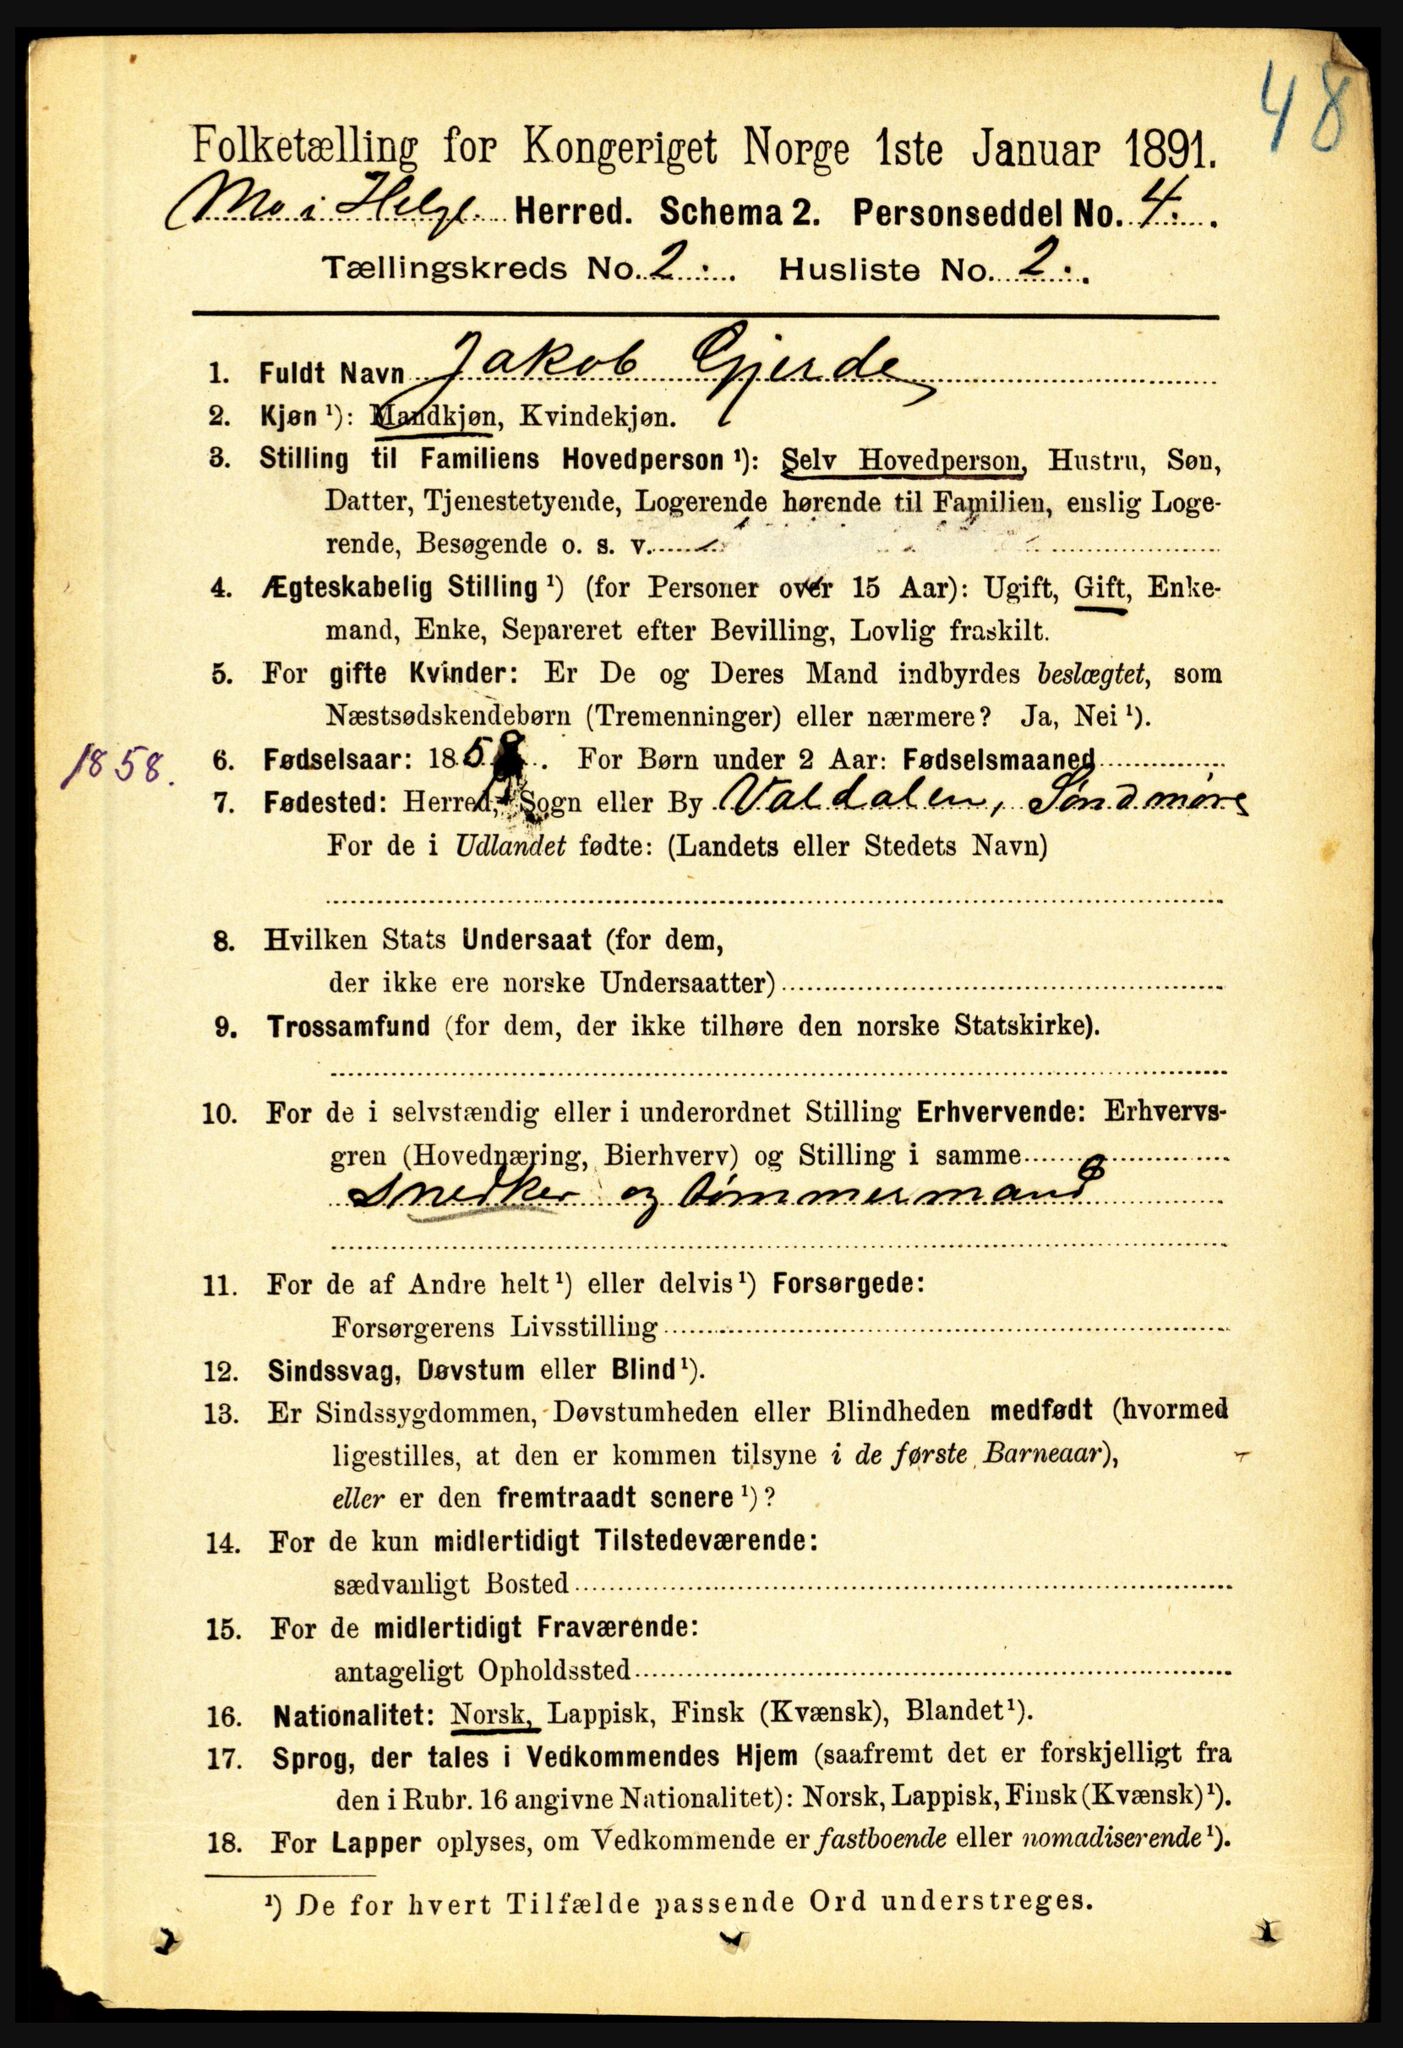 48
Folketælling for Kongeriget Norge 1ste Januar 1891.
Mo i Helgl. Herred. Schema 2. Personseddel No. 4.
Tællingskreds No. 2. Husliste No. 2.
1. Fuldt Navn Jakob Gjerde
2. Kjøn ¹): Mandkjøn, Kvindekjøn.
3. Stilling til Familiens Hovedperson ¹): Selv Hovedperson, Hustru, Søn,
Datter, Tjenestetyende, Logerende hørende til Familien, enslig Loge-
rende, Besøgende o. s. v.
4. Ægteskabelig Stilling ¹) (for Personer over 15 Aar): Ugift, Gift, Enke-
mand, Enke, Separeret efter Bevilling, Lovlig fraskilt.
5. For gifte Kvinder: Er De og Deres Mand indbyrdes beslægtet, som
Næstsødskendebørn (Tremenninger) eller nærmere? Ja, Nei ¹).
1858. 6. Fødselsaar: 1858. For Børn under 2 Aar: Fødselsmaaned
7. Fødested: Herred, Sogn eller By Valdalen, Søndmøre
For de i Udlandet fødte: (Landets eller Stedets Navn)
8. Hvilken Stats Undersaat (for dem,
der ikke ere norske Undersaatter)
9. Trossamfund (for dem, der ikke tilhøre den norske Statskirke).
10. For de i selvstændig eller i underordnet Stilling Erhvervende: Erhvervs-
gren (Hovednæring, Bierhverv) og Stilling i samme
Snedker og tømmermand
11. For de af Andre helt ¹) eller delvis ¹) Forsørgede:
Forsørgerens Livsstilling
12. Sindssvag, Døvstum eller Blind ¹).
13. Er Sindssygdommen, Døvstumheden eller Blindheden medfødt (hvormed
ligestilles, at den er kommen tilsyne i de første Barneaar),
eller er den fremtraadt senere ¹)?
14. For de kun midlertidigt Tilstedeværende:
sædvanligt Bosted
15. For de midlertidigt Fraværende:
antageligt Opholdssted
16. Nationalitet: Norsk, Lappisk, Finsk (Kvænsk), Blandet ¹).
17. Sprog, der tales i Vedkommendes Hjem (saafremt det er forskjelligt fra
den i Rubr. 16 angivne Nationalitet): Norsk, Lappisk, Finsk (Kvænsk) ¹).
18. For Lapper oplyses, om Vedkommende er fastboende eller nomadiserende ¹).
¹) De for hvert Tilfælde passende Ord understreges.